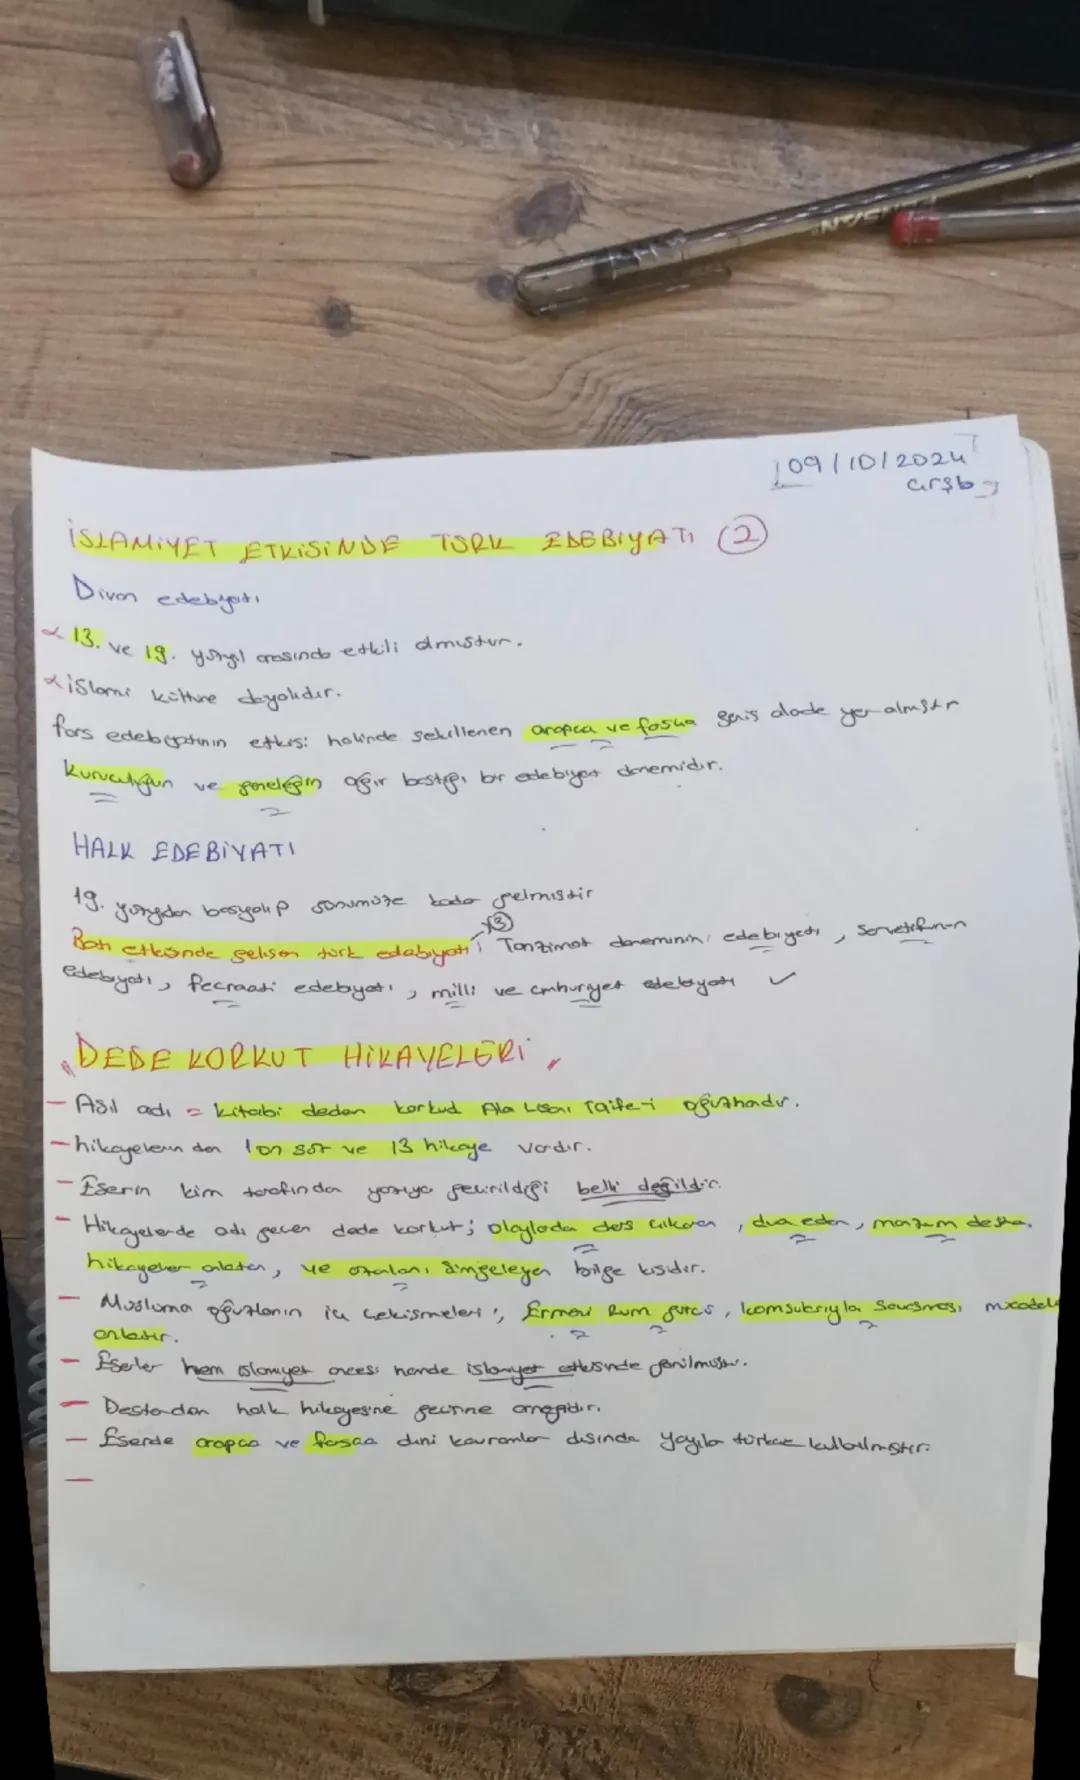 09/10/2024
Çrşb
İSLAMİYET ETKİSİNDE TÜRK EDEBİYATI (2)
Divan edebiyatı
13. ve 19. yüzyıl arasında etkili olmuştur.
İslami kültüre dayalıdır.
fars edebiyatının etkisi halinde şekillenen arapça ve farsça geniş olarak yer almıştır
Kuralcılığın ve geneleğin ağır bastığı bir edebiyat dönemidir.
HALK EDEBİYATI
19. yüzyıldan başyalıp günümüze kadar gelmiştir
(3)
Batı etkisinde gelişen türk edebiyatı; Tanzimat döneminin edebiyatı, servetifünun
edebiyatı, fecriaati edebiyatı, milli ve cmhuriyet edebiyatı ✓
"DEDE KORKUT HİKAYELERİ"
- Asıl adı = kitabı dedan korkud Ala Lisanı Taife-i oğuzhandır.
- hikayelerin den 1 ön söz ve 13 hikaye vardır.
- Eserin kim tarafından yazıya geçirildiği belli değildir.
- Hikayelerde adı geçen dede korkut; olaylarda ders çıkaran, dua eden, manzum destan
hikayeler anlatan, ve ozanları simgeleyen bilge kişidir.
- Müslüma oğuzların iç çekişmeleri; Ermeni Rum gürcü, komşularıyla savaşması mücadele
anlatır.
- Eserler hem islamiyet öncesi hemde islamiyet etkisinde yazılmıştır.
- Destandan halk hikayesine geçirine örneğidir.
- Eserde arapça ve farsça dini kavramlar dışında yayıla türkçe kullanılmıştır.
-